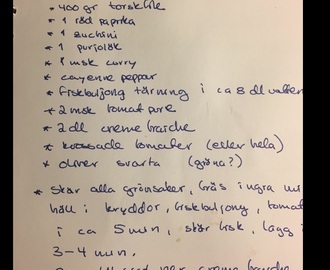 * 400 gr torskfile
* 1 röd paprika
* 1 zuchini
* 1 purjolök
* 1 msk curry
* cayenne peppar
* fiskbuljong tärning i ca 8 dl vatten
* 2 msk tomat pure
* 2 dl creme fraiche
* krossade tomater (eller hela)
* oliver svarta (gröna?)
* skär alla grönsaker, fräs
häll i kryddor, fiskbuljong, tomat
i ca 5 min, skär fisk, lägg i
3-4 min.